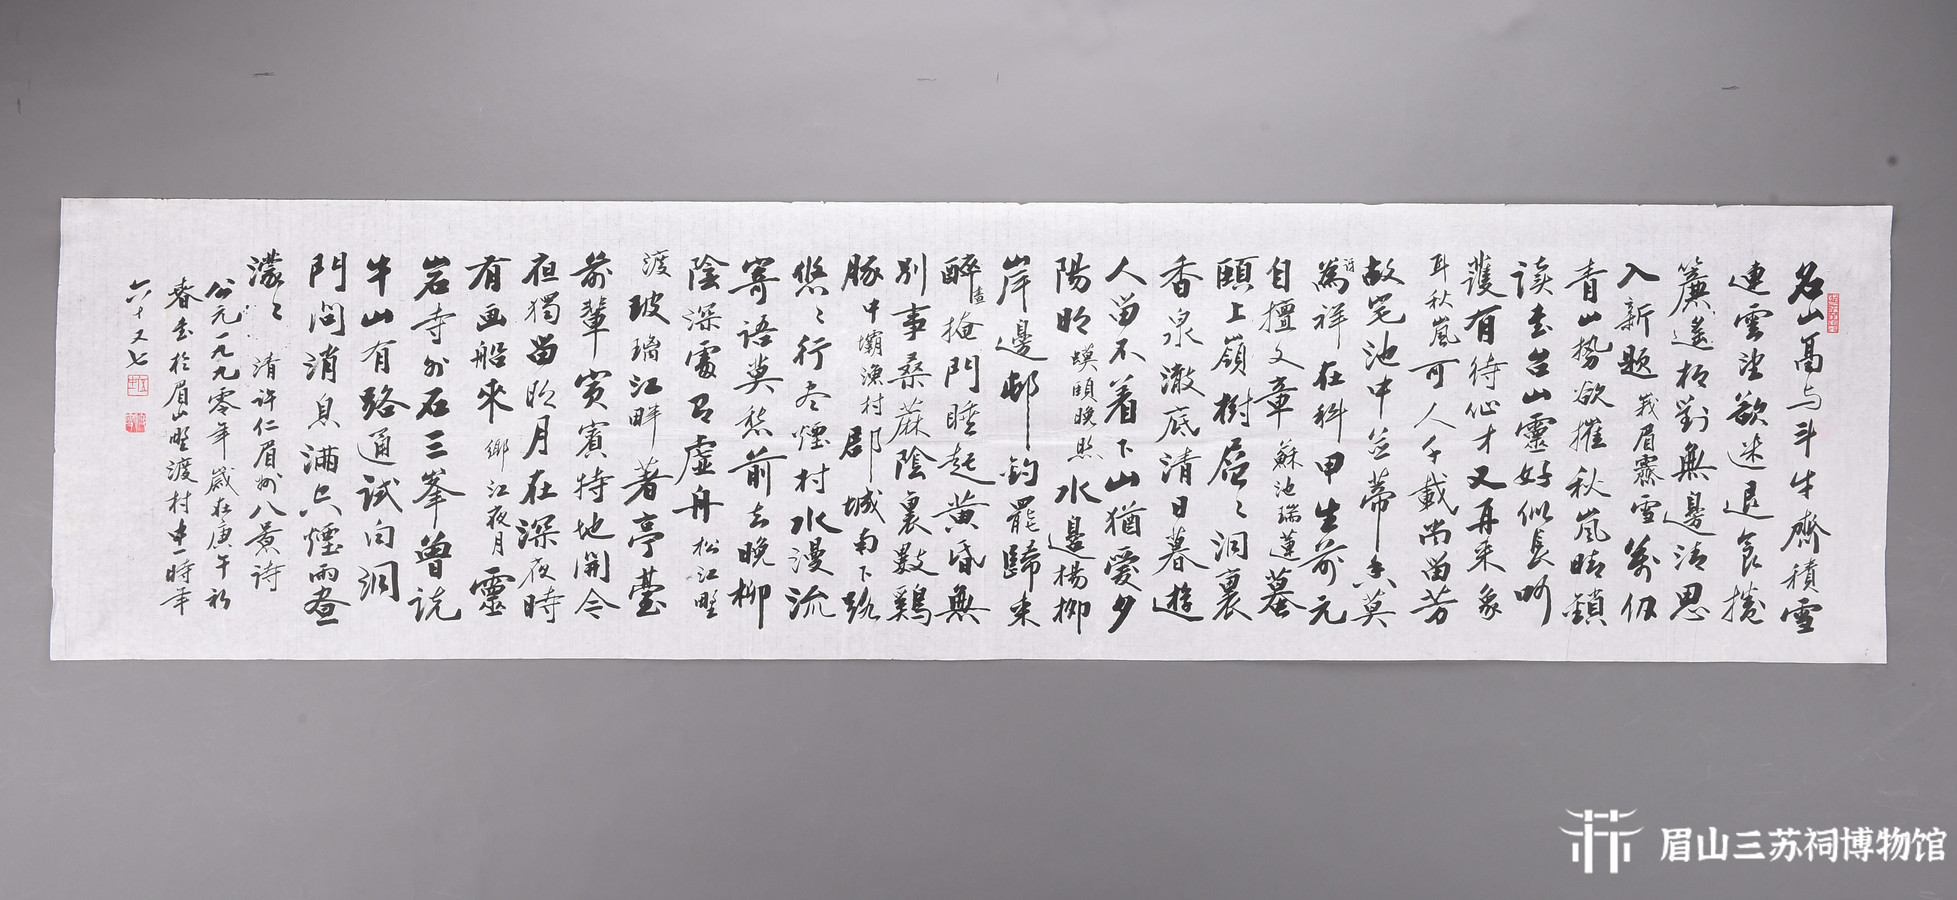 名山高与斗牛齊積雪
連雲望欲迷退食捲
簾遙相對無邊清思
入新題 峩眉霽雪 萬仞
青山势欲摧秋嵐晴鎖
读书台山靈好似長呵
護有待仙才又再来象
耳秋嵐 可人千載尚留芳
故宅池中并蒂香莫
為祥在科甲生前元
自擅文章 蘇池瑞蓮 蟇
頤上嶺樹層〻洞裏
香泉澈底清日暮遊
人留不着下山猶愛夕
陽明 蟆頤晚照 水邊楊柳
岸邊邨釣罷歸来
醉掩門睡起黄昏無
别事桑蔴陰裏數鷄
豚 中壩漁村 郡城南下路
悠〻行尽煙村水漫流
寄語莫愁前去晚柳
陰深處有虛舟 松江野
渡 玻璃江畔著亭臺
前輩賓特地開今
夜獨留明月在深夜時
有画船来 鄉江夜月 靈
岩寺外石三峯曾说
牛山有路通試向洞
門问消息滿空煙雨晝
濛〻 清许仁眉州八景诗
公元一九九零年歲在庚午初
春書於眉山野渡村 時年
六十又七
眉山三苏祠博物馆